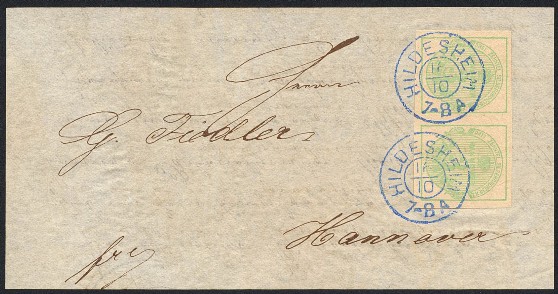 Herrn
G. Fiedler
Hannover
frei
HILDESHEIM
10
7-8 A
HILDESHEIM
10
7-8 A